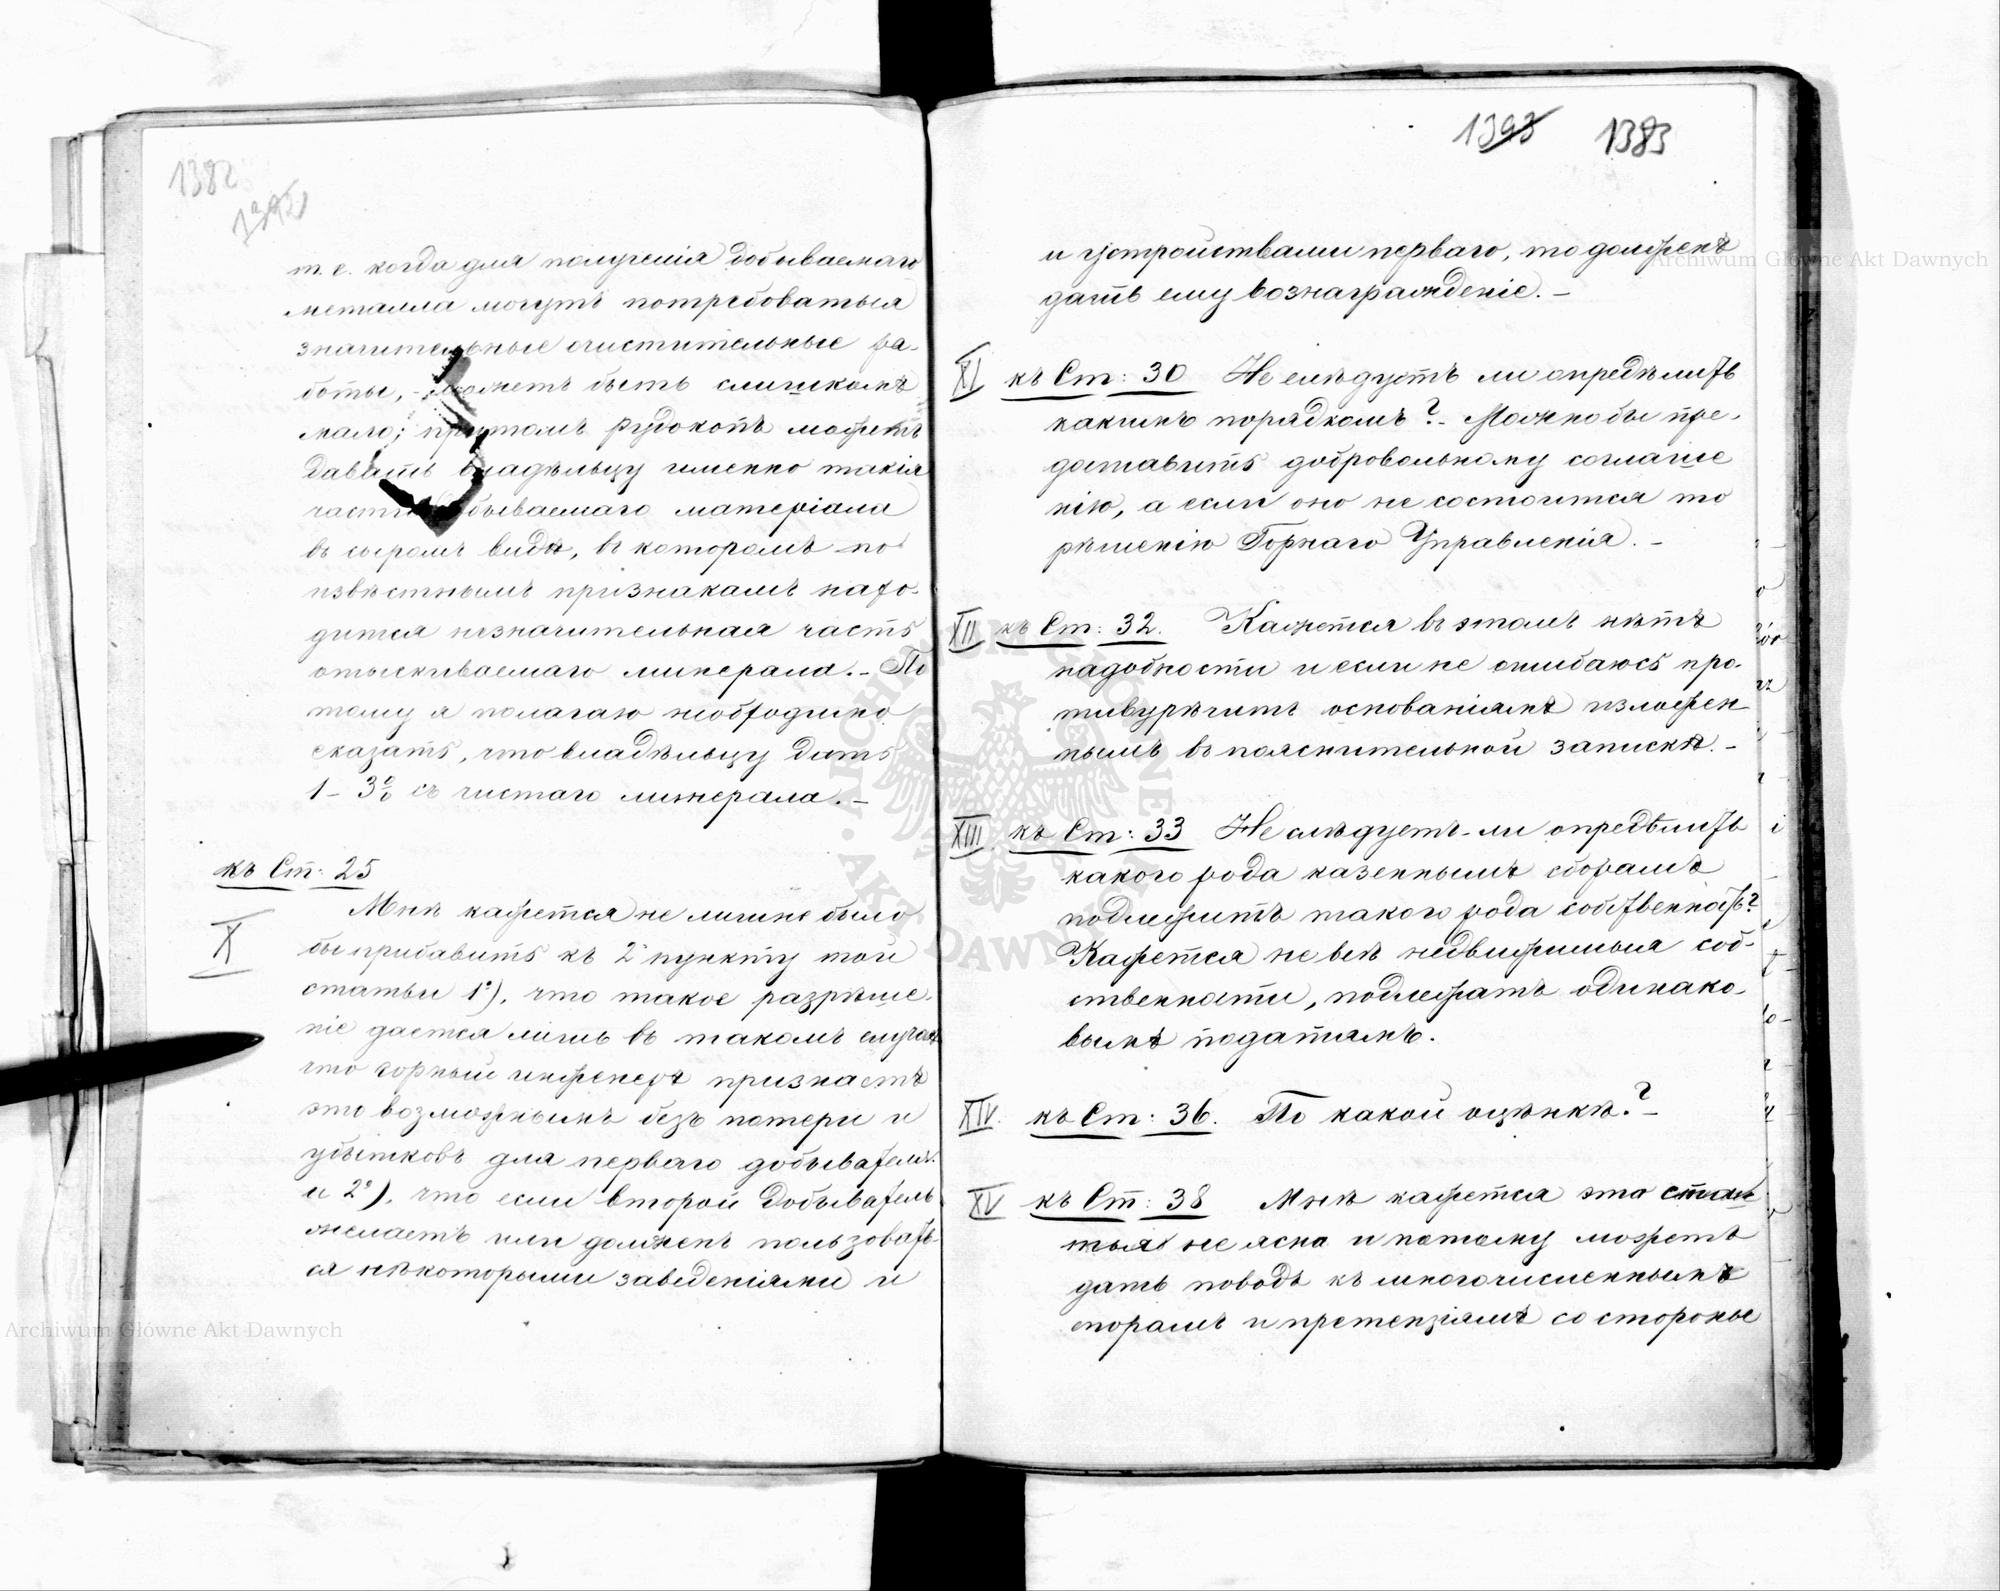 1382
1392
т. е. когда для полученія добываемаго
металла могутъ потребоваться
значительные очистительные ра-
боты, - можетъ быть слишкомъ
мало; притомъ рудокопъ можетъ
давать владѣльцу именно такія
части добываемаго матеріала
въ сыромъ видѣ, въ которомъ по
извѣстнымъ признакамъ нахо-
дится незначительная часть
отыскиваемаго минерала. - По
тому я полагаю необходимо
сказать, что владѣльцу дать
1 - 3% съ чистаго минерала. -
къ Ст: 25
X
Мнѣ кажется не лишне было
бы прибавить къ 2 пункту той
статьи 1°), что такое разрѣше-
ніе дается лишь въ такомъ случаѣ
что горный инженеръ признаетъ
это возможнымъ безъ потери и
убытковъ для перваго добывателя
и 2°), что если второй добыватель
желаетъ или долженъ пользовать
ся нѣкоторыми заведеніями и
1393 1383
и устройствами перваго, то долженъ
дать ему вознагражденіе. -
XI къ Ст: 30 Не слѣдуетъ ли опредѣлить
какимъ порядкомъ? - Можно бы пре-
доставить добровольному соглаше
нію, а если оно не состоится то
рѣшенію Горнаго Управленія. -
XII къ Ст: 32. Кажется въ этомъ нѣтъ
надобности и если не ошибаюсь про-
тивурѣчитъ основаніямъ изложен
нымъ въ пояснительной запискѣ. -
XIII къ Ст: 33 Не слѣдуетъ-ли опредѣлить
какого рода казеннымъ сборамъ
подлежитъ такого рода собственность?
Кажется не всѣ недвижимыя соб-
ственности, подлежатъ одинако-
вымъ податямъ.
XIV. къ Ст: 36. По какой оцѣнкѣ? -
XV къ Ст: 38 Мнѣ кажется эта
тья не ясна и потому можетъ
дать поводъ къ многочисленнымъ
спорамъ и претензіямъ со стороны
Archiwum Główne Akt Dawnych
Archiwum Główne Akt Dawnych